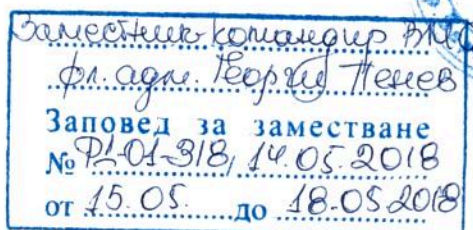 Заместник-командир ВМС
фл. адм. Георги Пенев
Заповед за заместване
№ РД-01-318, 14.05.2018
от 15.05. до 18.05.2018